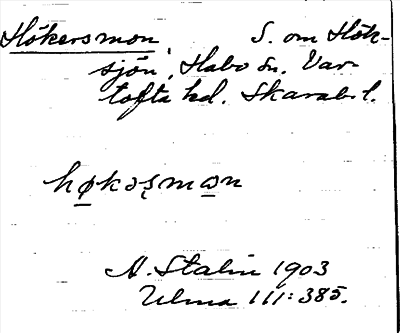 Hökersmon, S. om Hök-
sjön, Habo sn. Var-
tofta hd. Skarab. l.
høkəʂmɷn
N. Stalin 1903
Ulma 111:385.